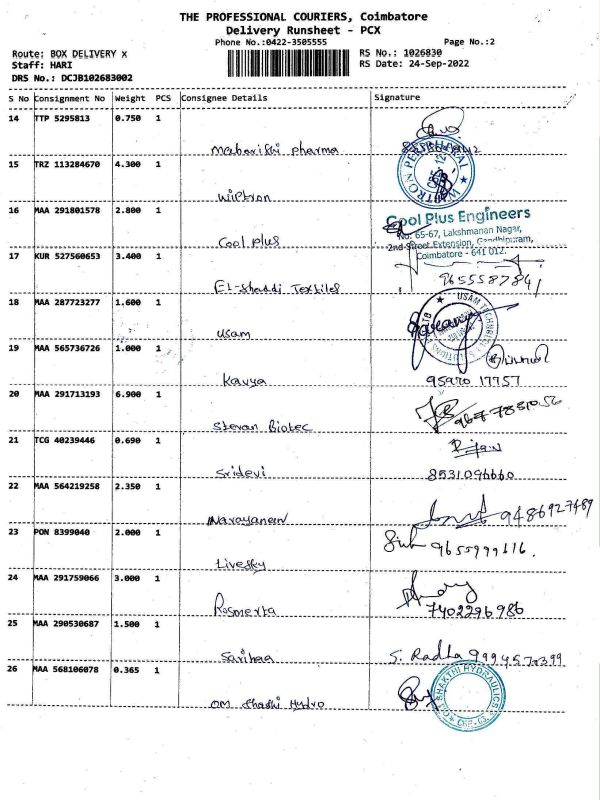 THE PROFESSIONAL COURIERS, Coimbatore
Delivery Runsheet - PCX
Phone No.:0422-3505555 Page No.:2
Route: BOX DELIVERY x RS No.: 1026830
Staff: HARI RS Date: 24-Sep-2022
DRS No.: DCJB102683002
S No Consignment No Weight PCS Consignee Details Signature
14 TTP 5295813 0.750 1
Mabarishi pharma
15 TRZ 113284670 4.300 1
Wiptron
16 MAA 291801578 2.800 1
Cool plus
Cool Plus Engineers
No: 65-67, Lakshmanan Nagar,
2nd Street Extension, Gandhipuram,
Coimbatore - 641 012.
17 KUR 527560653 3.400 1
El-Shaddi Textiles 9655587841
18 MAA 287723277 1.600 1
Usam
USAM TECHNOLOGY SOLUTIONS LTD
19 MAA 565736726 1.000 1
Kavya 95970 17757
20 MAA 291713193 6.900 1
Stevan Biotec
21 TCG 40239446 0.690 1
Sridevi 8531096660
22 MAA 564219258 2.350 1
Narayaneen 9486927489
23 PON 8399040 2.000 1
Livesky 9655999116.
24 MAA 291759066 3.000 1
Rosmerta 7402296986
25 MAA 290530687 1.500 1
Sarihaa S. Radha
26 MAA 568106078 0.365 1
OM Shathi Hydro
SHAKTHI HYDRAULICS